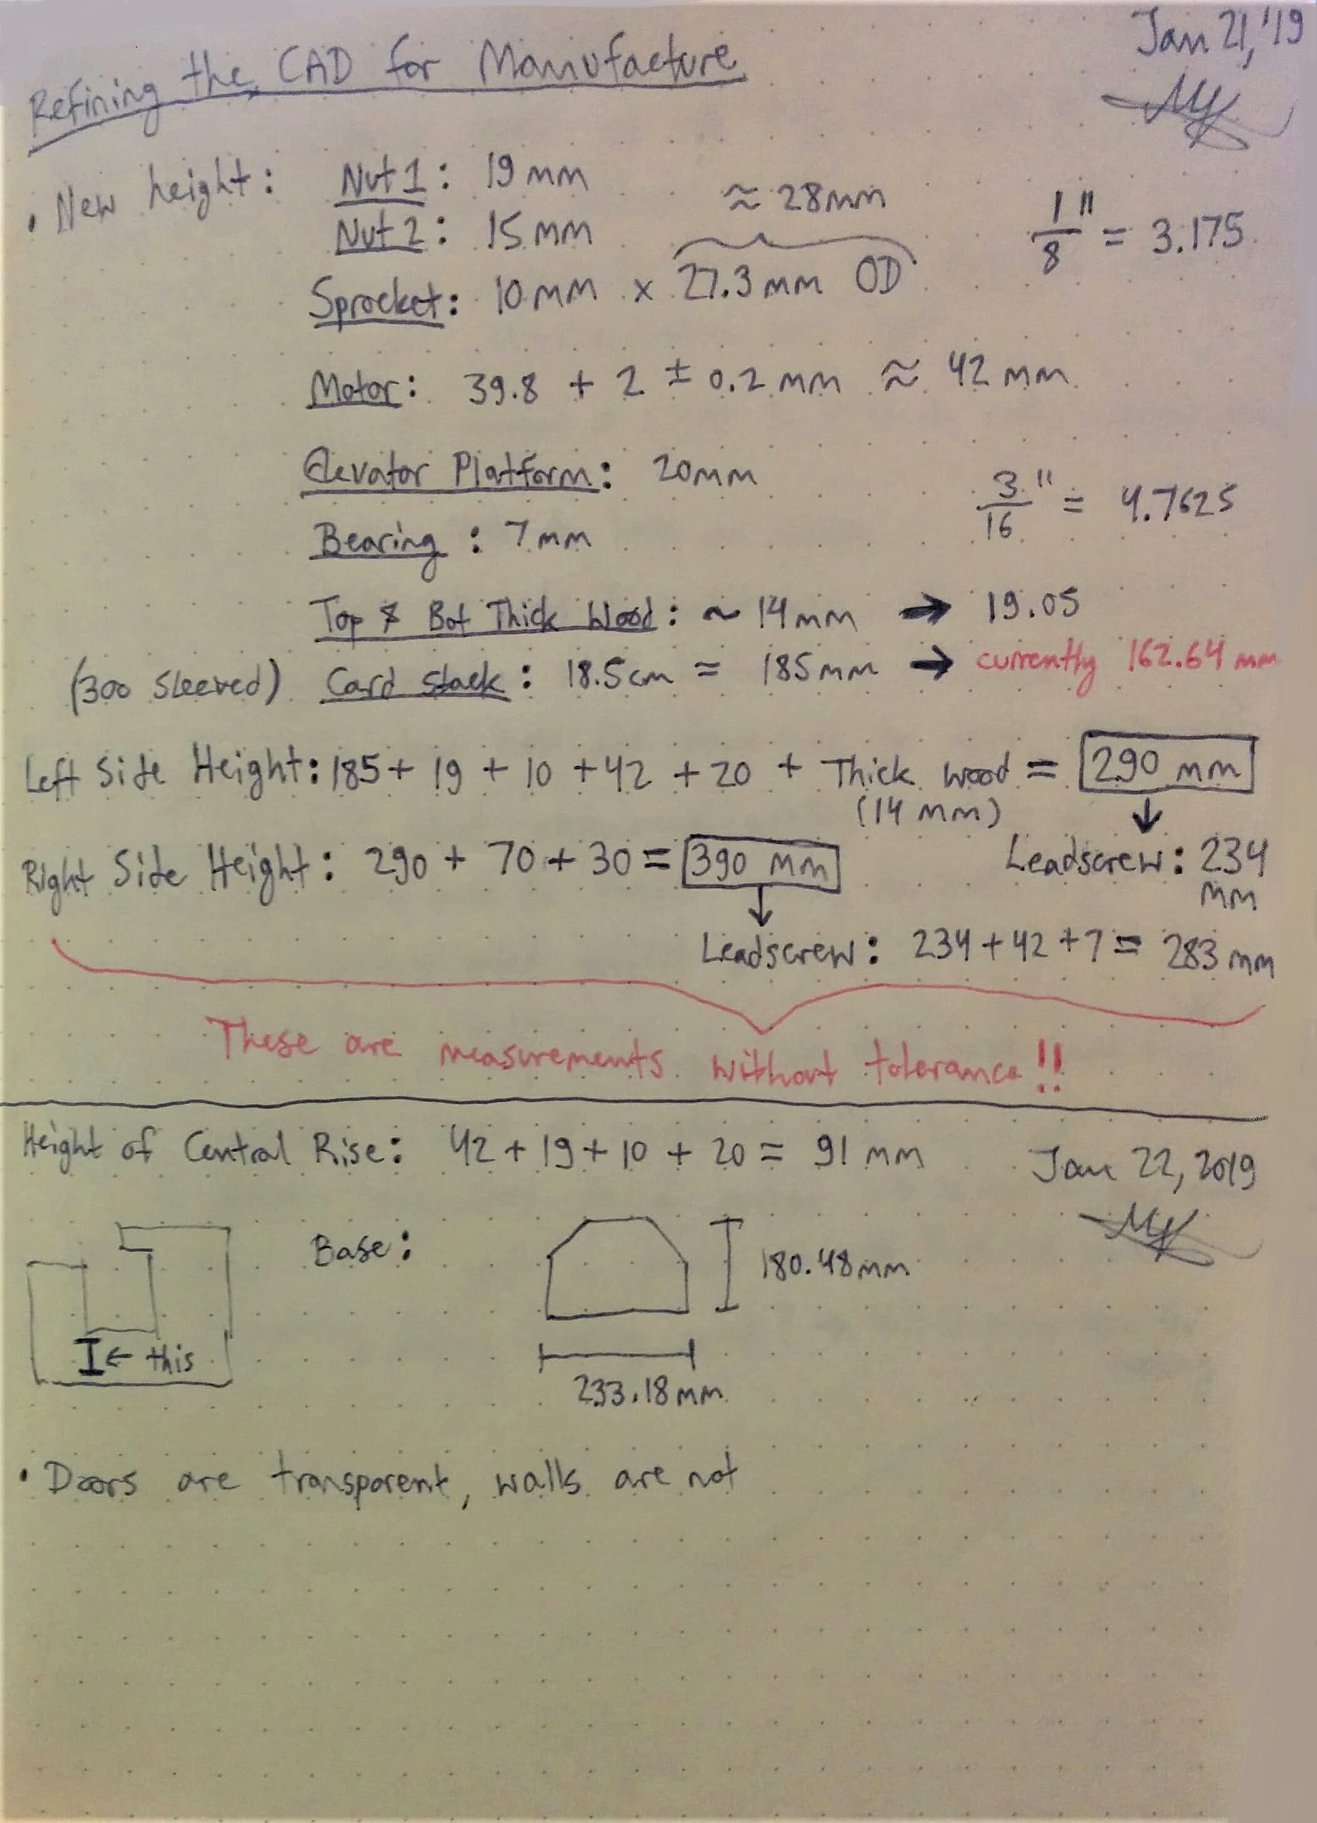 Jan 21, '19
Refining the CAD for Manufacture
• New height: Nut 1: 19 mm
≈ 28mm
Nut 2: 15 mm
1/8" = 3.175
Sprocket: 10 mm x 27.3 mm OD
Motor: 39.8 + 2 ± 0.2 mm ≈ 42 mm
Elevator Platform: 20mm
3/16" = 4.7625
Bearing : 7 mm
Top & Bot Thick Wood: ~ 14 mm → 19.05
(300 sleeved) Card stack: 18.5cm = 185mm → currently 162.64 mm
Left Side Height: 185 + 19 + 10 + 42 + 20 + Thick wood = 290 mm
(14 mm)
↓
Right Side Height: 290 + 70 + 30 = 390 mm
Leadscrew: 234
mm
↓
Leadscrew: 234 + 42 + 7 = 283 mm
These are measurements without tolerance!!
Height of Central Rise: 42 + 19 + 10 + 20 = 91 mm
Jan 22, 2019
Base:
180.48mm
I ← this
233.18 mm
• Doors are transparent, walls are not